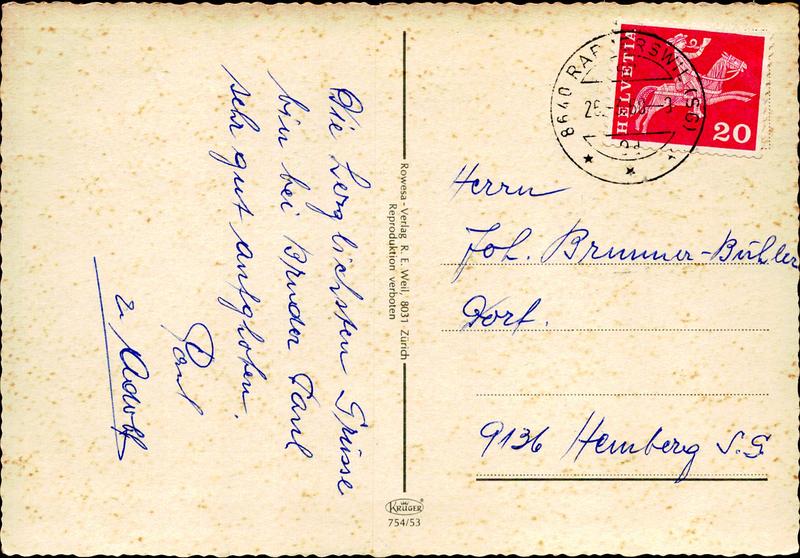 Die herzlichsten Grüsse
bin bei Bruder Paul
sehr gut aufghoben.
Paul
u. Adolf
Rowesa-Verlag R. E. Weil, 8031 Zürich
Reproduktion verboten
KRÜGER
754/53
8640 RAPPERSWIL (SG)
HELVETIA
20
Herrn
Joh. Brunner-Bühler
Dorf.
9136 Hemberg S.G.